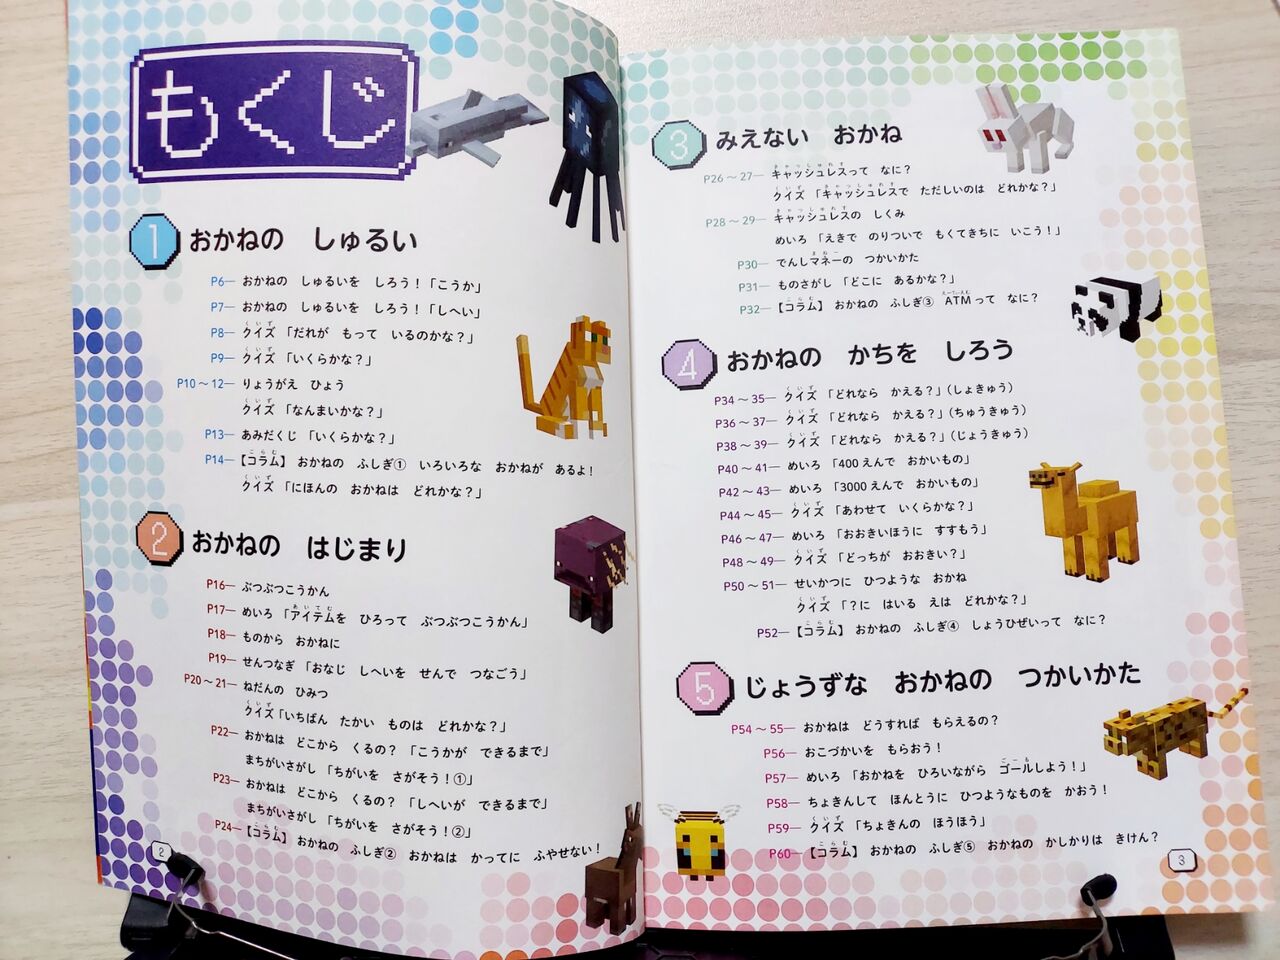 もくじ
1 おかねの しゅるい
P6― おかねの しゅるいを しろう！「こうか」
P7― おかねの しゅるいを しろう！「しへい」
P8― クイズ 「だれが もって いるのかな？」
P9― クイズ 「いくらかな？」
P10～12― りょうがえ ひょう
クイズ 「なんまいかな？」
P13― あみだくじ 「いくらかな？」
P14― 【コラム】 おかねの ふしぎ① いろいろな おかねが あるよ！
クイズ 「にほんの おかねは どれかな？」
2 おかねの はじまり
P16― ぶつぶつこうかん
P17― めいろ 「アイテムを ひろって ぶつぶつこうかん」
P18― ものから おかねに
P19― せんつなぎ 「おなじ しへいを せんで つなごう」
P20～21― ねだんの ひみつ
クイズ「いちばん たかい ものは どれかな？」
P22― おかねは どこから くるの？ 「こうかが できるまで」
まちがいさがし 「ちがいを さがそう！①」
P23― おかねは どこから くるの？ 「しへいが できるまで」
まちがいさがし 「ちがいを さがそう！②」
P24― 【コラム】 おかねの ふしぎ② おかねは かってに ふやせない！
2
3 みえない おかね
P26～27― キャッシュレスって なに？
クイズ 「キャッシュレスで ただしいのは どれかな？」
P28～29― キャッシュレスの しくみ
めいろ 「えきで のりついで もくてきちに いこう！」
P30― でんしマネーの つかいかた
P31― ものさがし 「どこに あるかな？」
P32― 【コラム】 おかねの ふしぎ③ ATMって なに？
4 おかねの かちを しろう
P34～35― クイズ 「どれなら かえる？」（しょきゅう）
P36～37― クイズ 「どれなら かえる？」（ちゅうきゅう）
P38～39― クイズ 「どれなら かえる？」（じょうきゅう）
P40～41― めいろ 「400えんで おかいもの」
P42～43― めいろ 「3000えんで おかいもの」
P44～45― クイズ 「あわせて いくらかな？」
P46～47― めいろ 「おおきいほうに すすもう」
P48～49― クイズ 「どっちが おおきい？」
P50～51― せいかつに ひつような おかね
クイズ 「？に はいる えは どれかな？」
P52― 【コラム】 おかねの ふしぎ④ しょうひぜいって なに？
5 じょうずな おかねの つかいかた
P54～55― おかねは どうすれば もらえるの？
P56― おこづかいを もらおう！
P57― めいろ 「おかねを ひろいながら ゴールしよう！」
P58― ちょきんして ほんとうに ひつようなものを かおう！
P59― クイズ 「ちょきんの ほうほう」
P60― 【コラム】 おかねの ふしぎ⑤ おかねの かしかりは きけん？
3